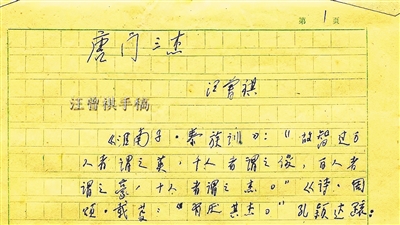 第 1 页
唐门三杰
汪曾祺
汪曾祺手稿
《淮南子·泰族训》：“故智过万
人者谓之英，千人者谓之俊，百人者
谓之豪，十人者谓之杰。”《诗·周
颂·载芟：“有厌其杰。”孔颖达疏：